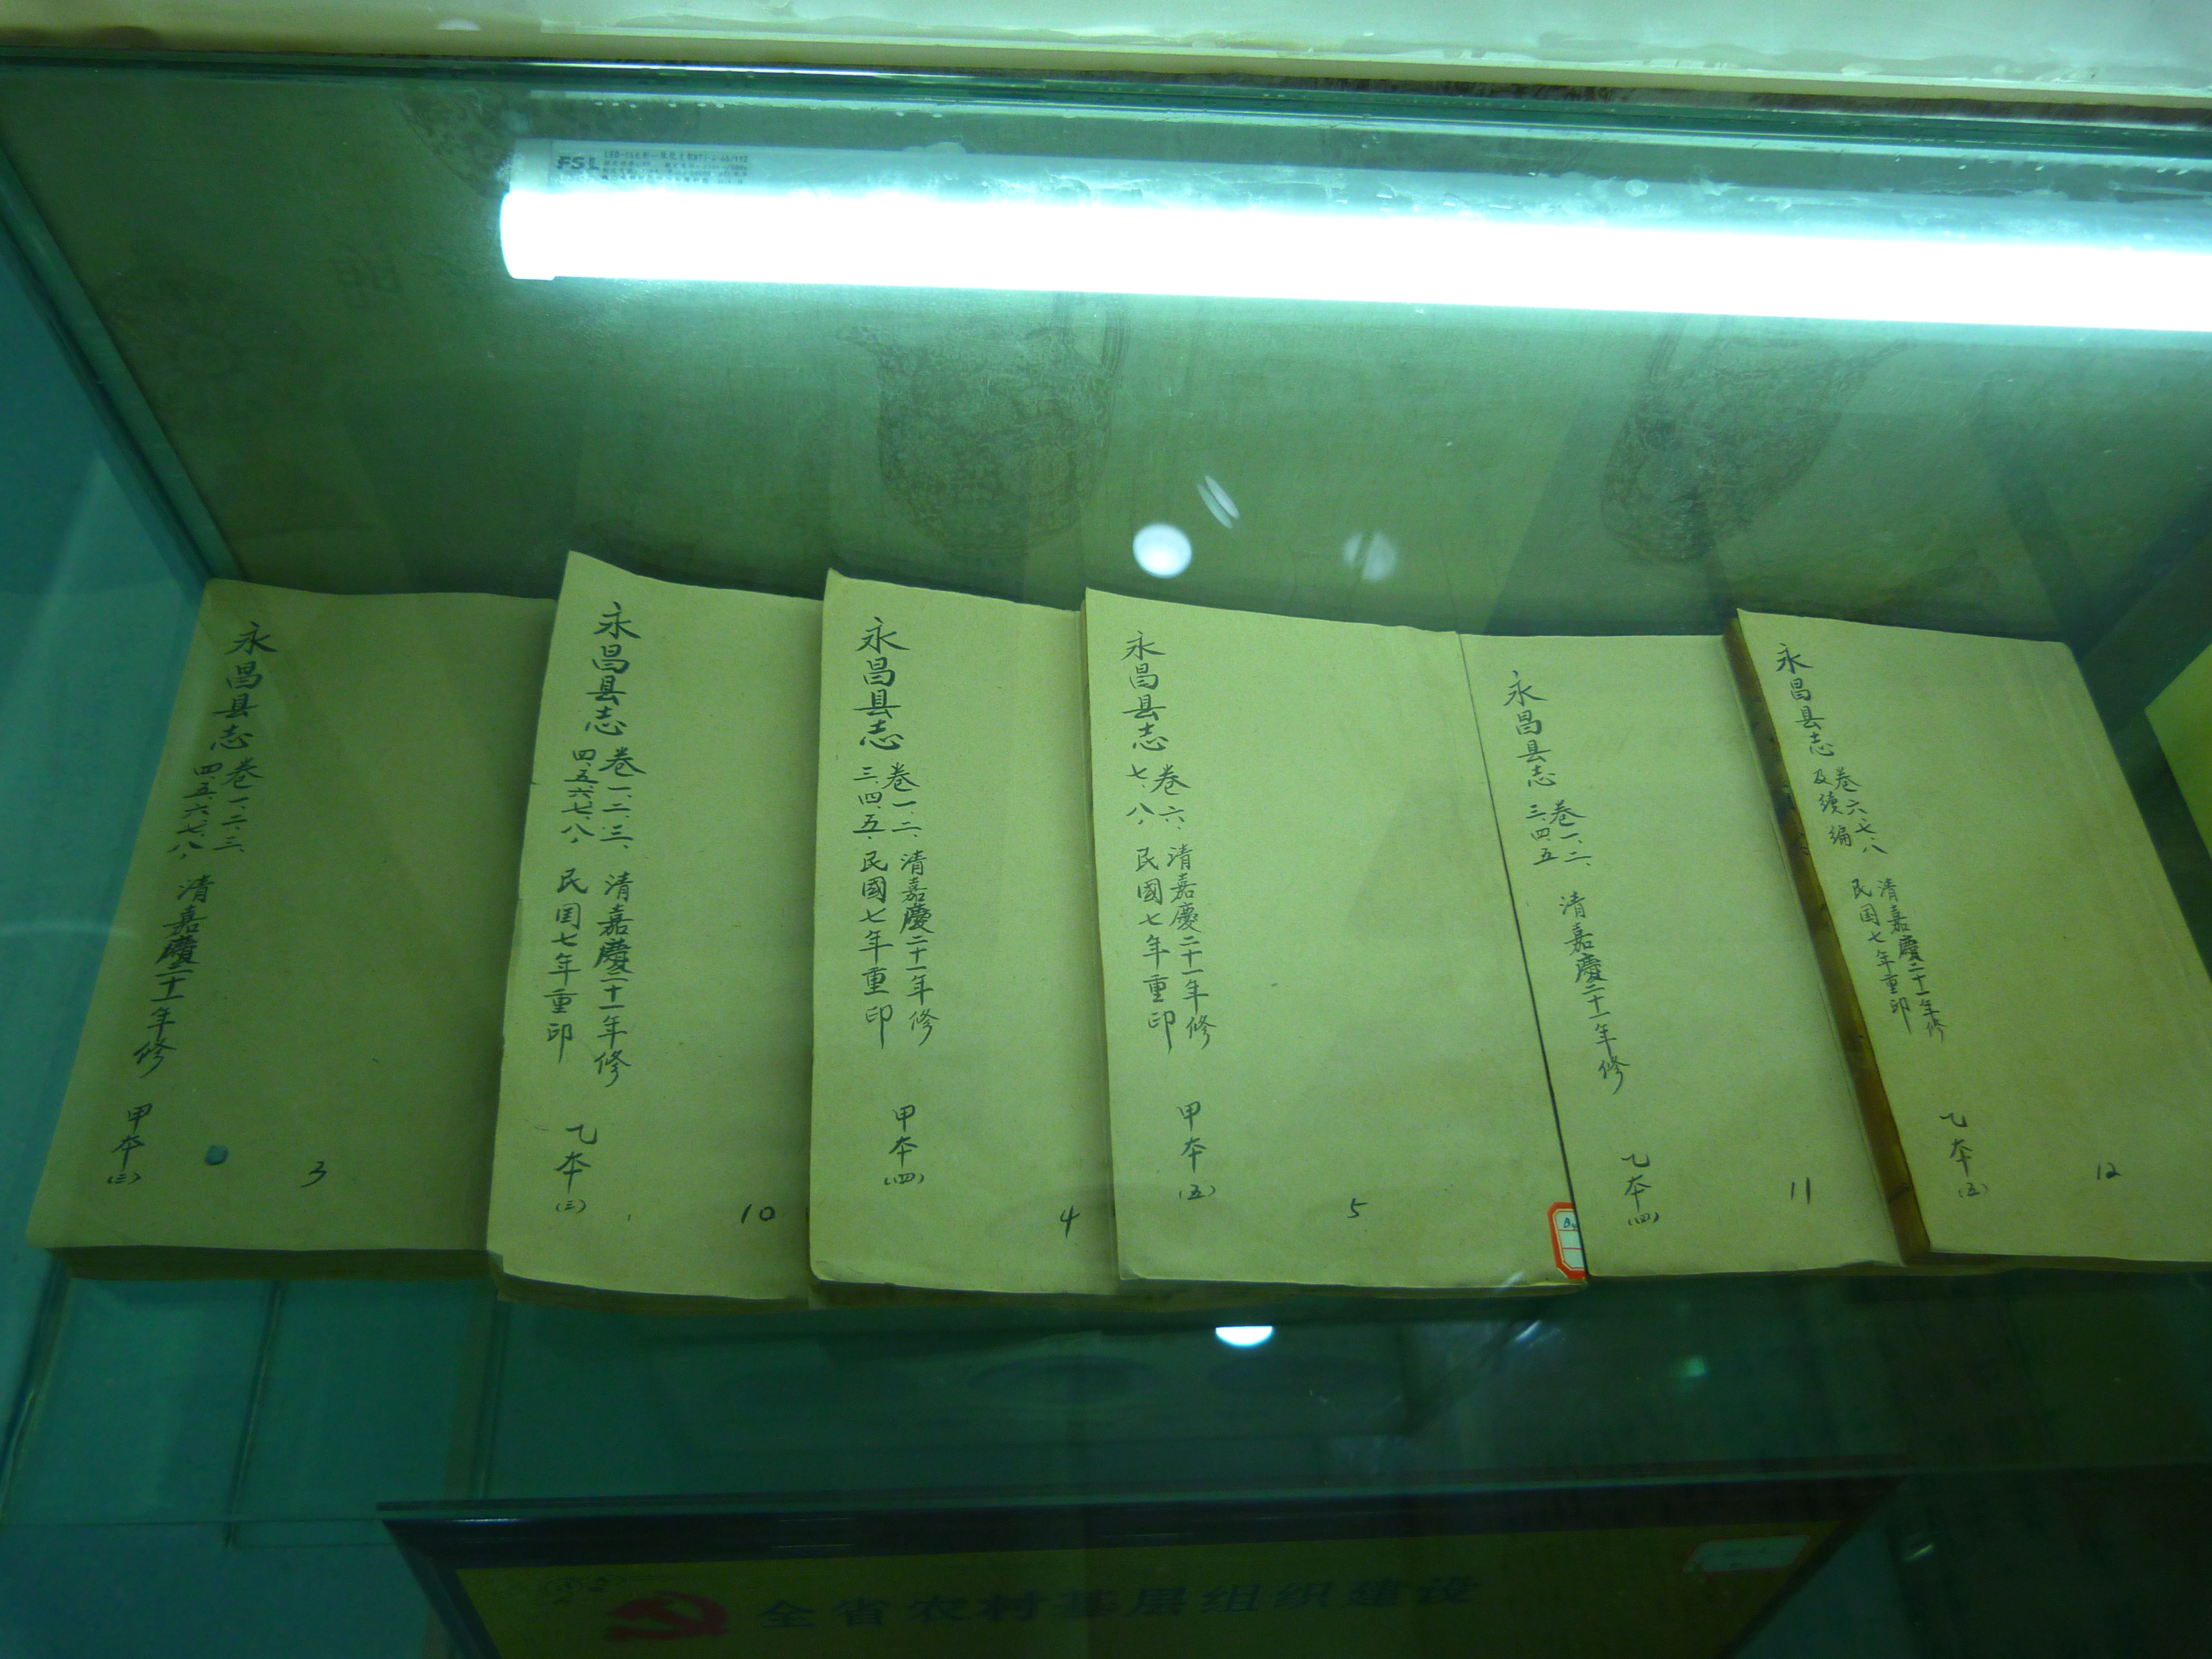 FSL
永昌县志
卷一、二、三、
四、五、六、七、八、
清嘉慶二十一年修
甲本
(三)
3
永昌县志
卷一、二、三、
四、五、六、七、八、
清嘉慶二十一年修
民国七年重印
乙本
(三)
10
永昌县志
卷一、二、
三、四、五、
清嘉慶二十一年修
民國七年重印
甲本
(四)
4
永昌县志
卷六、
七、八、
清嘉慶二十一年修
民國七年重印
甲本
(五)
5
永昌县志
卷一、二、
三、四、五
清嘉慶二十一年修
乙本
(四)
11
永昌县志
卷六、七、八
及續编
清嘉慶二十一年修
民国七年重印
乙本
(五)
12
全省农村基层组织建设